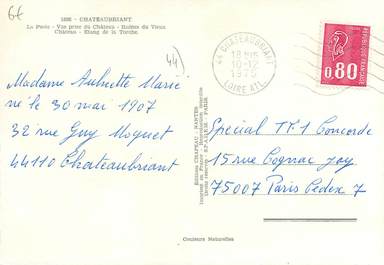 6f
1886 - CHATEAUBRIANT
La Poste - Vue prise du Château - Ruines du Vieux
Château - Etang de la Torche.
44)
Madame Aubrette Marie
né le 30 mai 1907
32 rue Guy Moquet
44110 Chateaubriant
44 CHATEAUBRIANT
10-12
1975
LOIRE ATL.
REPUBLIQUE FRANÇAISE
0,80
Editions CHAPEAU - NANTES
Special TF1 Concorde
15 rue Cognac Jay
75007 Paris Cedex 7
Couleurs Naturelles